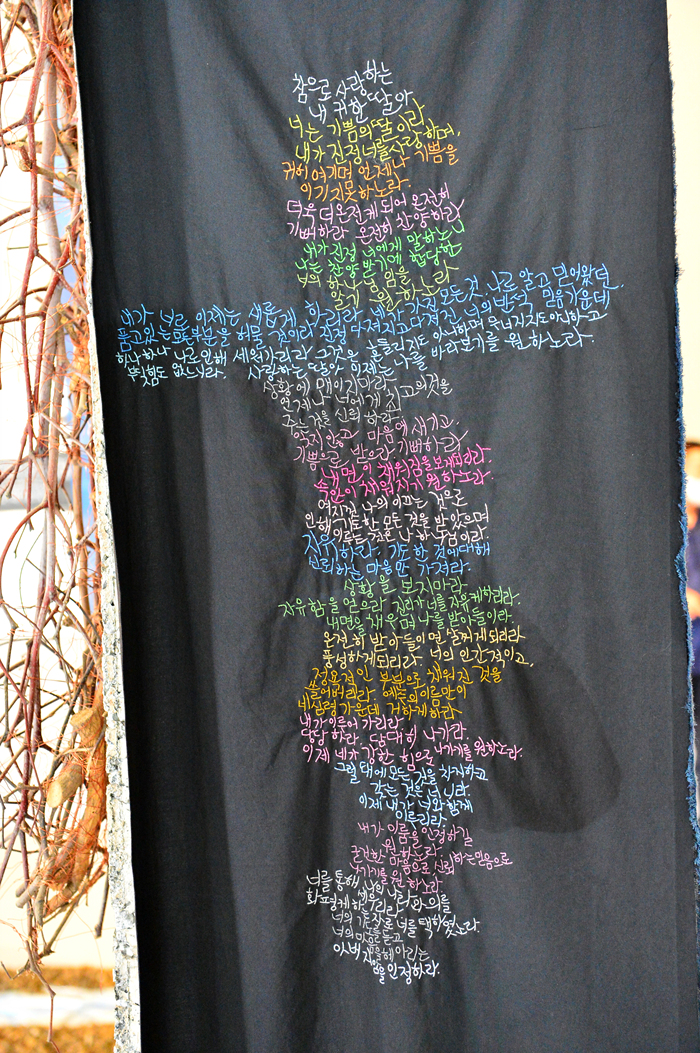 참으로 사랑하는
내 귀한 딸아
너는 기쁨의 딸이라
내가 진정 너를 사랑하며,
귀히 여기며 언제나 기쁨을
이기지 못하노라.
더욱 더 온전케 되어 온전히
기뻐하라 온전히 찬양하라
내가 진정 너에게 말하노니
나는 찬양 받기에 합당한
너의 하나님 임을
알기 원하노라
내가 너를 이제는 새롭게 하리라. 네가 가진 모든 것, 나로 알고 믿어왔던,
품고있는 모든부분을 허물 것이라 진정 다져지고 다져진 너의 반석, 믿음가운데
하나하나 나로 인해 세워가리라 그것은 흔들리지도 아니하며 무너지지도 아니하고
부족함도 없느니라. 사랑하는 딸아 이제는 나를 바라보기를 원하노라.
상황에 매이지마라
언제나 너에게 최고의것을
주는 것을 신뢰 하라.
잊지 않고 마음에 새기고.
기쁨으로 받으라 기뻐하라
내면의 채워짐을 보게되리라
속사람이 채워지기 원하노라.
여지껏 나의 이끄는 것으로
인해 기도한 모든 것을 받았으며
이루는 것은 나 하나님이라.
자유하라. 기도한 것에 대해
신뢰하는 마음만 가져라.
상황을 보지마라
자유함을 얻으라 진리가 너를 자유케하리라.
내면을 채우며 나를 받아들이라.
온전히 받아들이면 살찌게되리라
풍성하게되리라. 너의 인간적이고,
정욕적인 부분으로 채워진 것을
끊어버리라 예수의 이름만이
네심령 가운데 거하게하라
내가 이루어 가리라
당당하라. 담대히 나가라.
이제 네가 강한 힘으로 나가기를 원하노라.
그럴 때에 모든 것을 차지하고
갖는 것은 너니라.
이제 내가 너와 함께
이루리라.
내가 이룸을 인정하길
원하노라.
굳건한 마음으로 신뢰하는믿음으로
나가기를 원하노라
너를 통해 나의 나라와 의를
화평케하며 세우리라
너의 가는 자로 너를 택하였노라.
너의 마음을 놓고
아버지 마음을 헤아리는
삶을 인정하라.